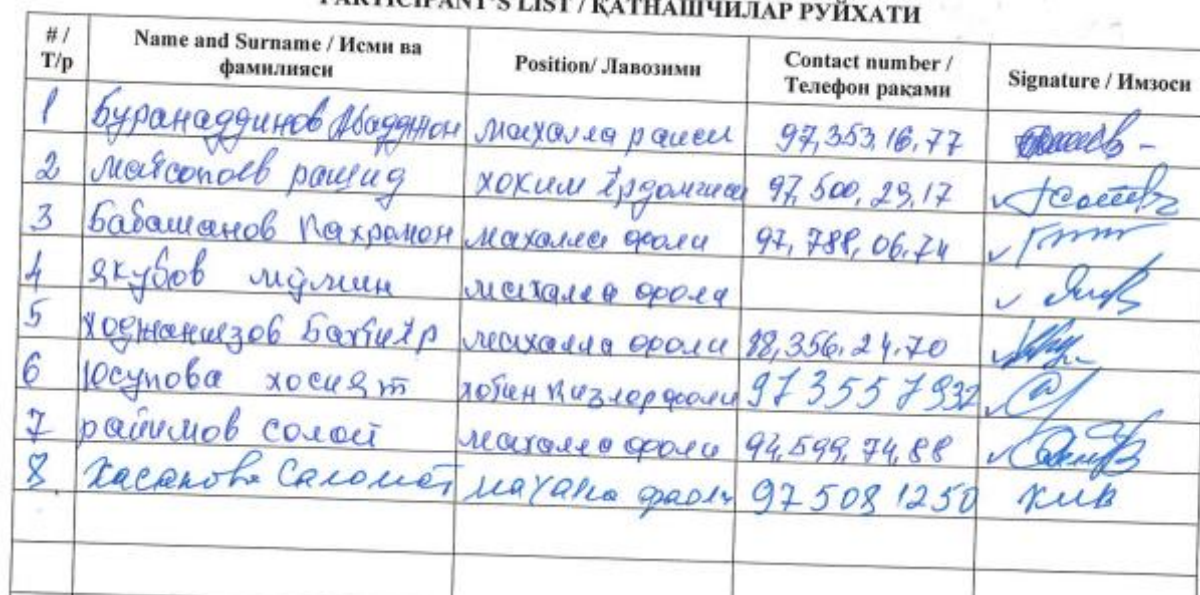 PARTICIPANT'S LIST / ҚАТНАШЧИЛАР РУЙХАТИ
# / Т/р Name and Surname / Исми ва фамилияси Position/ Лавозими Contact number / Телефон рақами Signature / Имзоси
1 Буранаддинов махалла раиси 97,353,16,77
2 рашид хоким ёрдамчиси 97,500,29,17
3 Бабашанов Қахрамон махалла фаоли 97,788,06,74
4 якубов мўмин махалла фаоли
5 Ходжаниязов Бахтиёр махалла фаоли 88,356,24,70
6 Юсупова хосият хотин қизлар фаоли 97 355 7932
7 раимов солой махалла фаоли 94,599,74,88
8 Хасанова Саломат махалла фаоли 97 508 1250